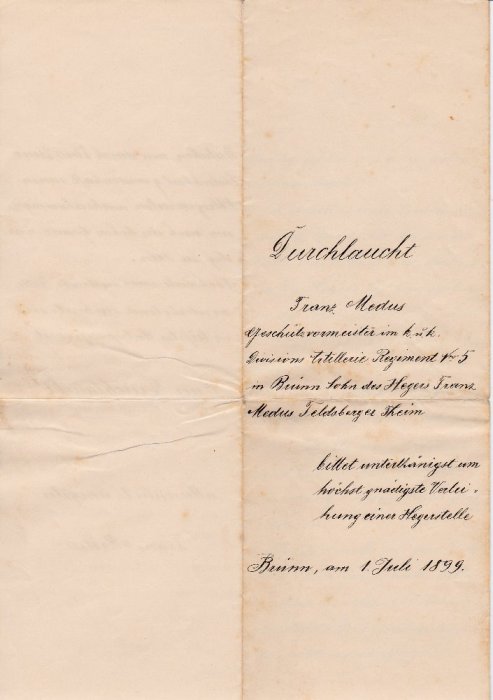 Durchlaucht
Franz Medus
Geschützvormeister im k. u. k.
Divisions Artillerie Regiment Nr 5
in Brünn Sohn des Hegers Franz
Medus Feldsberger Theim
bittet unterthänigst um
höchst gnädigste Verlei-
hung einer Hegerstelle
Brünn, am 1. Juli 1899.